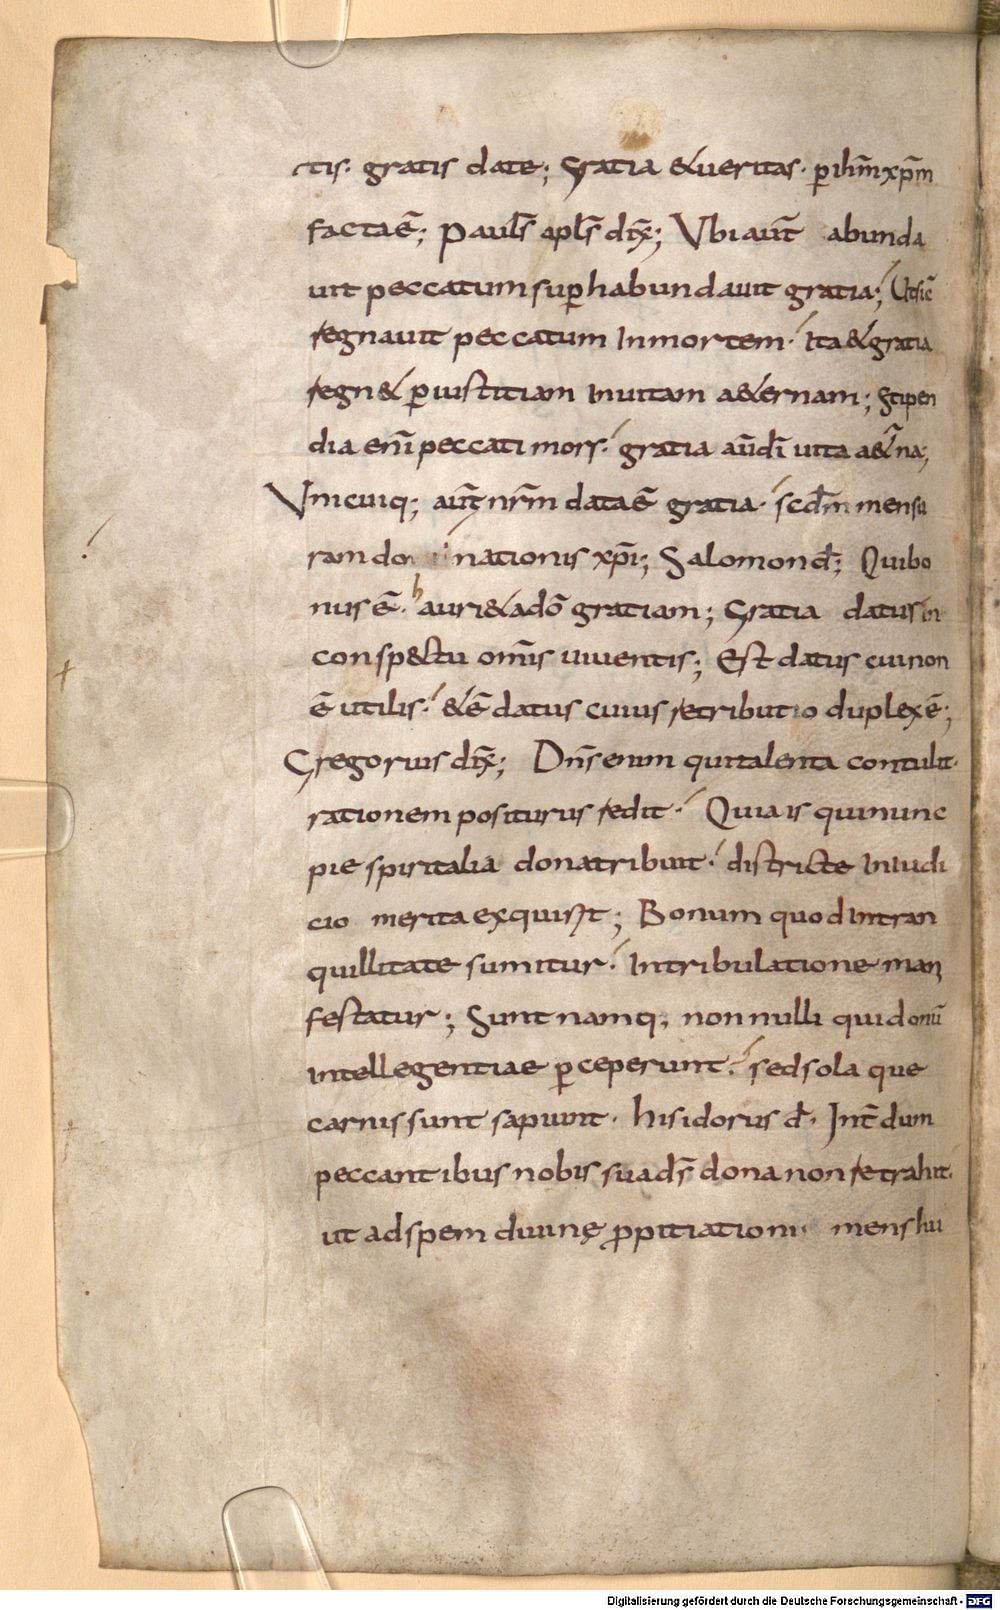 ctis· gratis date; Gratia &ueritas· ꝑ ihm̄ xp̄m
facta ē; Paul̄s apl̄s dix̄; Vbi aut̄ abunda
uit peccatum suꝑhabundauit gratia; Ut sic̄
regnauit peccatum In mortem· Ita & gratia
regn& ꝑ iustitiam In uitam a&ernam; Stipen
dia eni̅ peccati mors· gratia aū di̅ uita a&̄na;
Vnicuiq; aut̄ nr̄m data ē gratia· scd̄m mensu
ram do nationis xp̄i; Salomon d̄; Qui bo
nus ē· hauri& a dō gratiam; Gratia datus in
consp&tu omn̄is uiuentis; Est datus cui non
ē utilis· & ē datus cuius retributio duplex ē;
Gregorius dix̄; Dn̄s enim qui talenta contulit·
rationem positurus redit· Quia is qui nunc
pie spiritalia dona tribuit· districte In iudi
cio merita exquirit; Bonum quod In tran
quillitate sumitur· In tribulatione mani
festatur; Sunt namq; nonnulli qui donū
intellegentiae ꝑceperunt· sed sola que
carnis sunt sapiunt· hisidorus d̄· Int̄dum
peccantibus nobis sua ds̄ dona non retrahit·
ut ad spem diuinę ꝓpitiationi mens hu
Digitalisierung gefördert durch die Deutsche Forschungsgemeinschaft - DFG